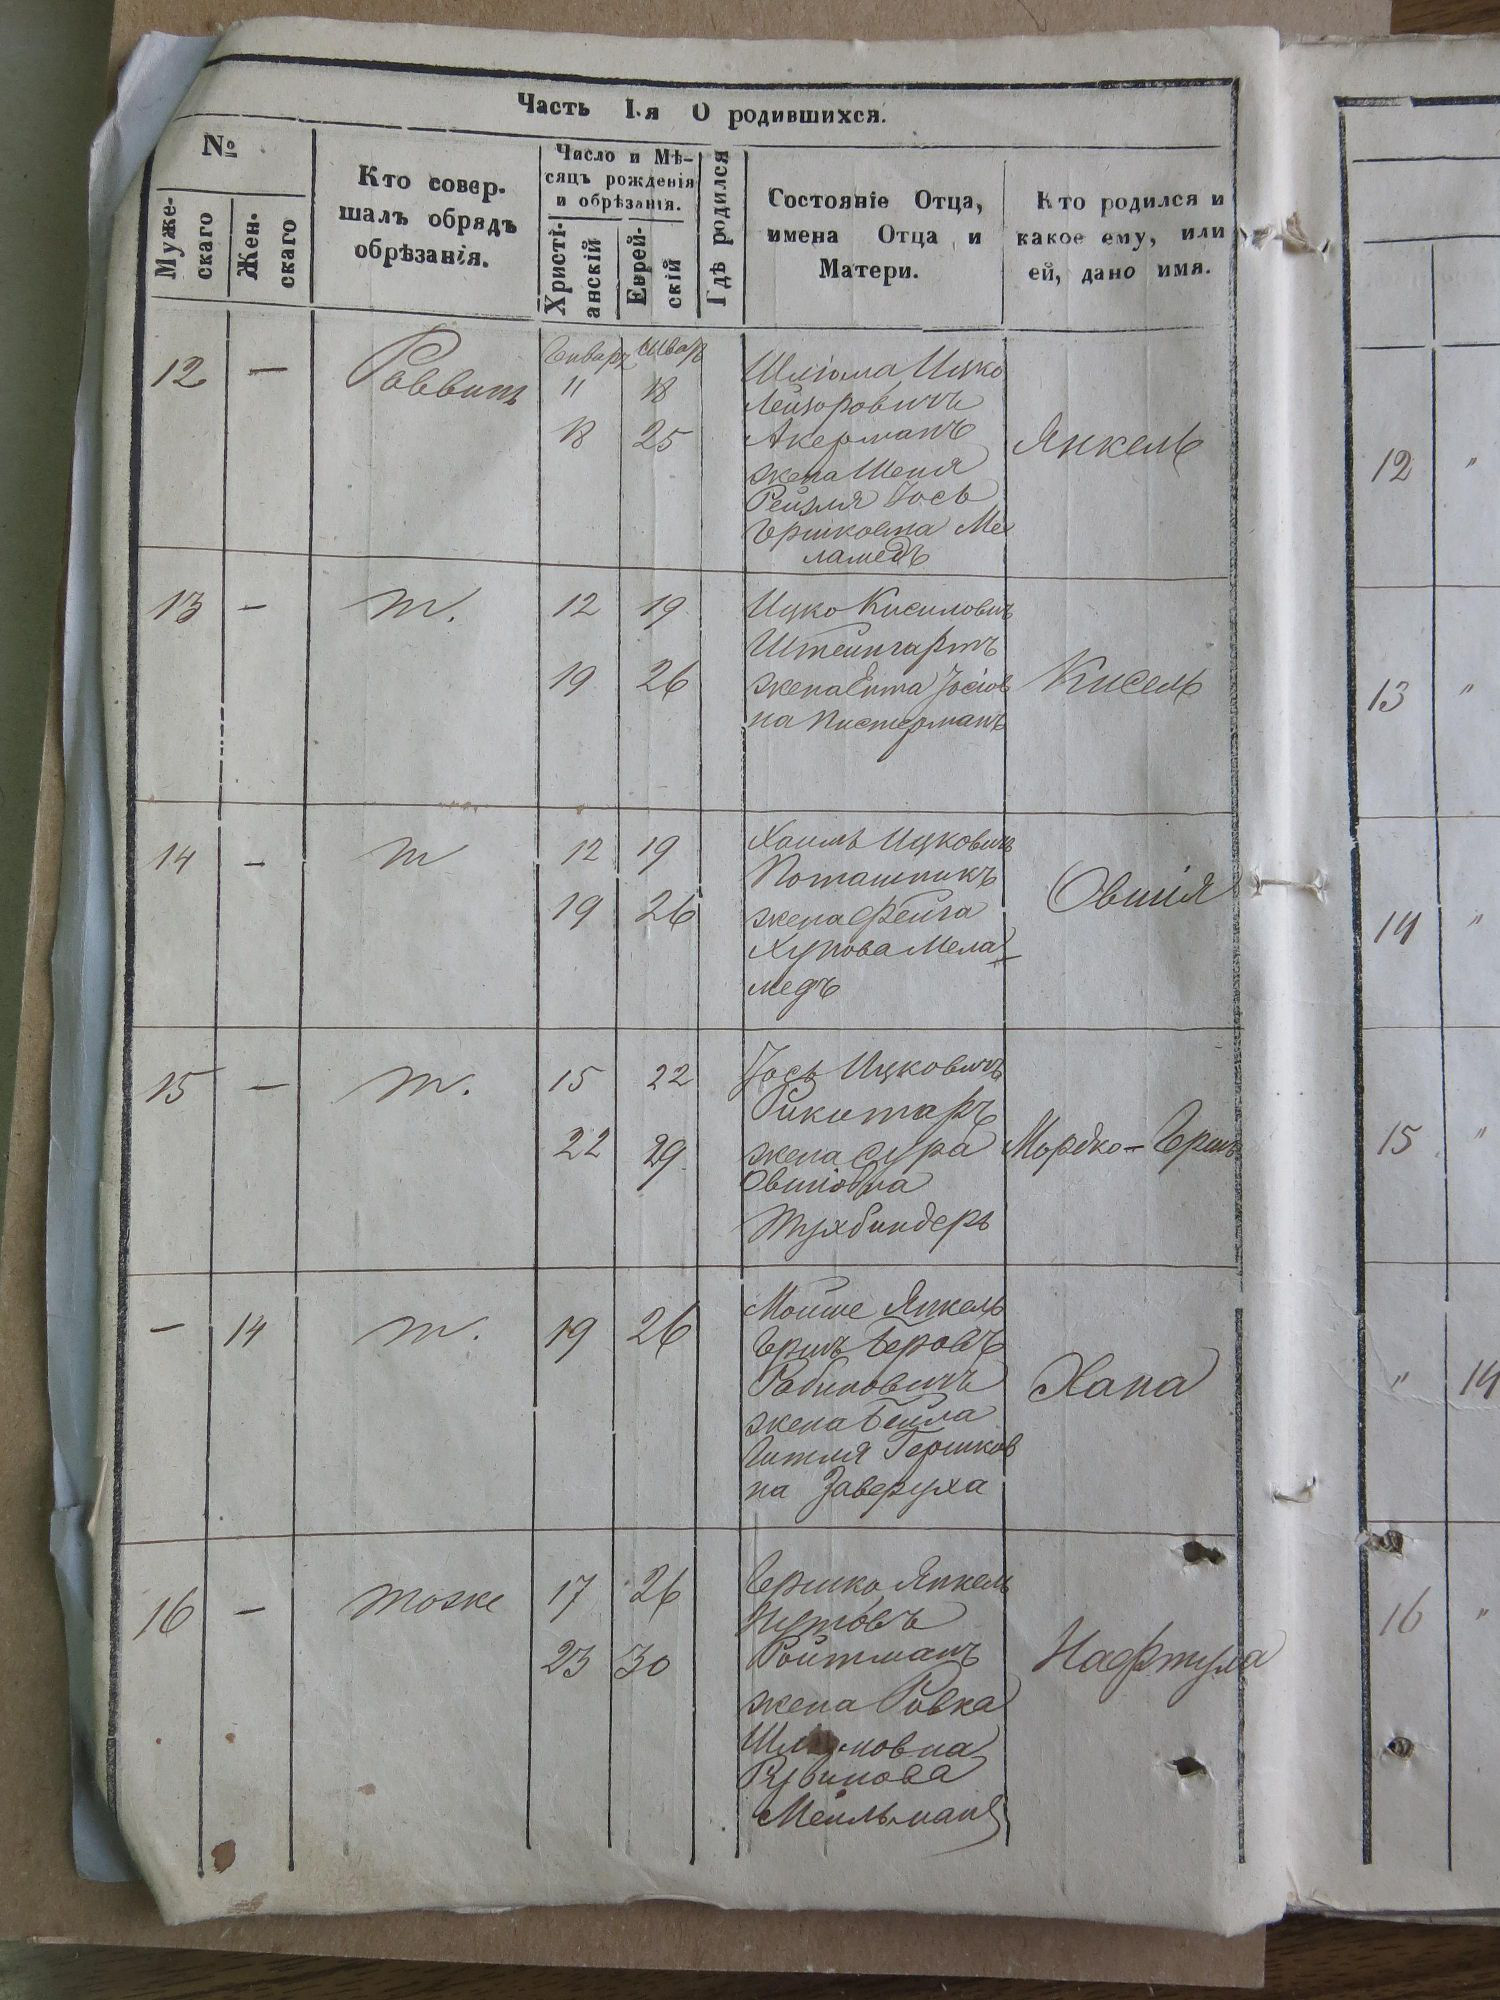 Часть I.я О родившихся.
№
Муже-
скаго
Жен-
скаго
Кто совер-
шалъ обрядъ
обрѣзанія.
Число и Мѣ-
сяцъ рожденія
и обрѣзанія.
Христі-
анскій
Еврей-
скій
Гдѣ родился
Состояніе Отца,
имена Отца и
Матери.
Кто родился и
какое ему, или
ей, дано имя.
12 — Раввинъ
Январь
11 18
18 25
Шліома Ицко
Лейзоровичъ
Акерманъ
жена Шейя
Рейзля Іось
Гершковна Ме
ламедъ
Янкель
13 — т. 12 19
19 26
Ицко Кисилович
Штейнгартъ
жена Ента Іосіов
на Пистерманъ
Кисель
14 — т 12 19
19 26
Хаимъ Ицкович
Поташникъ
жена Фейга
Хунова Мела-
медъ
Овшія
15 — т. 15 22
22 29
Іось Ицковичъ
жена Сура
Овшіовна
Тухбиндеръ
Мордко-Гершъ
— 14 т. 19 26
Мойше Янкель
Гершъ Беровъ
Рабиновичъ
жена Бейла
Гитля Гершков
на Заверуха
Хана
16 — тоже 17 26
23 30
Гершко Янкель
Нутовъ
Ройтманъ
жена Ривка
Рувинова
Мейльман
Нафтула
12 "
13 "
14 "
15 "
" 14
16 "